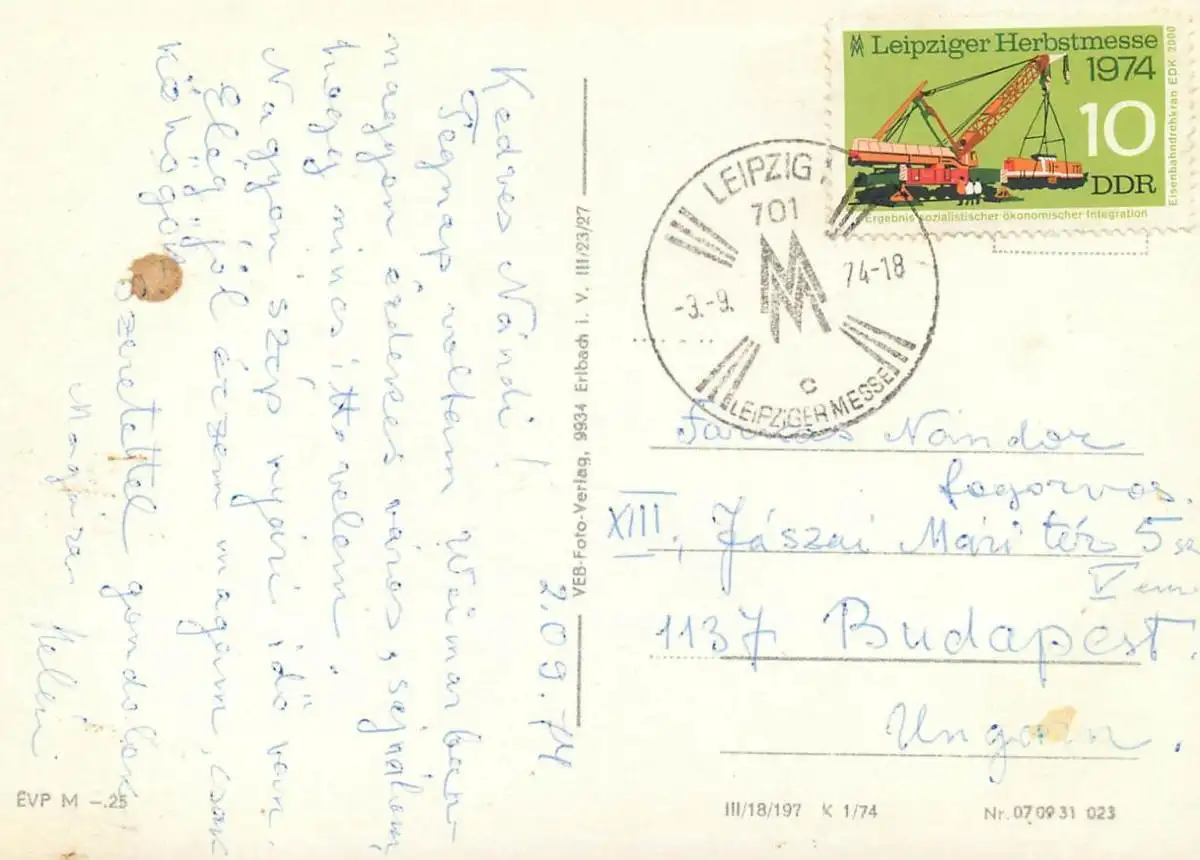 2.09.74.
Kedves Nándi!
Tegnap voltam Weimarban
nagyon érdekes város, sajnálom,
hogy nincs itt velem.
Nagyon szép nyári idő van.
Elég jól érzem magam, csak
köhögök
Szeretettel gondolok
Magára
VEB-Foto-Verlag, 9934 Erlbach i. V. III/23/27
Leipziger Herbstmesse
1974
10
DDR
Eisenbahndrehkran EDK 2000
Ergebnis sozialistischer ökonomischer Integration
LEIPZIG
701
MM
-3.-9. 74-18
c
LEIPZIGER MESSE
Nándor
fogorvos.
XIII, Jászai Mari tér 5
V em
1137 Budapest.
Ungarn.
EVP M -.25
III/18/197 K 1/74
Nr. 07 09 31 023